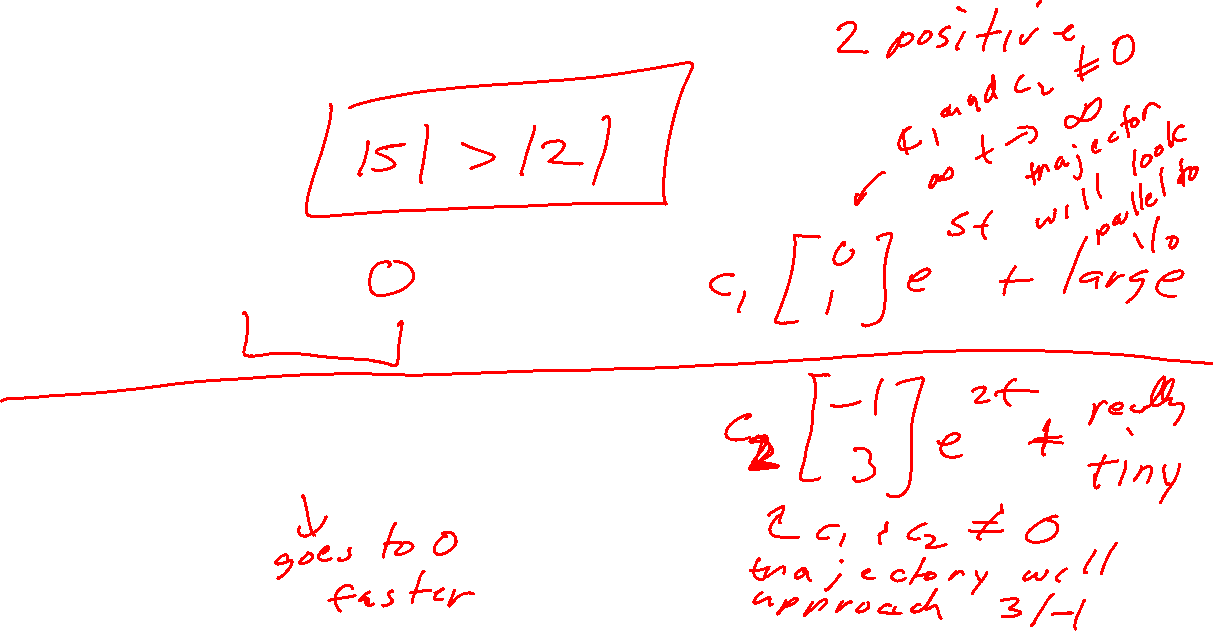 2 positive
c₁ and c₂ ≠ 0
|5| > |2|
as t → ∞
trajector
will look
parallel to
1/0
0
c₁ [0 1] e^5t + large
c₂ [-1 3] e^2t + really
tiny
c₁, c₂ ≠ 0
goes to 0
faster
trajectory will
approach 3/-1